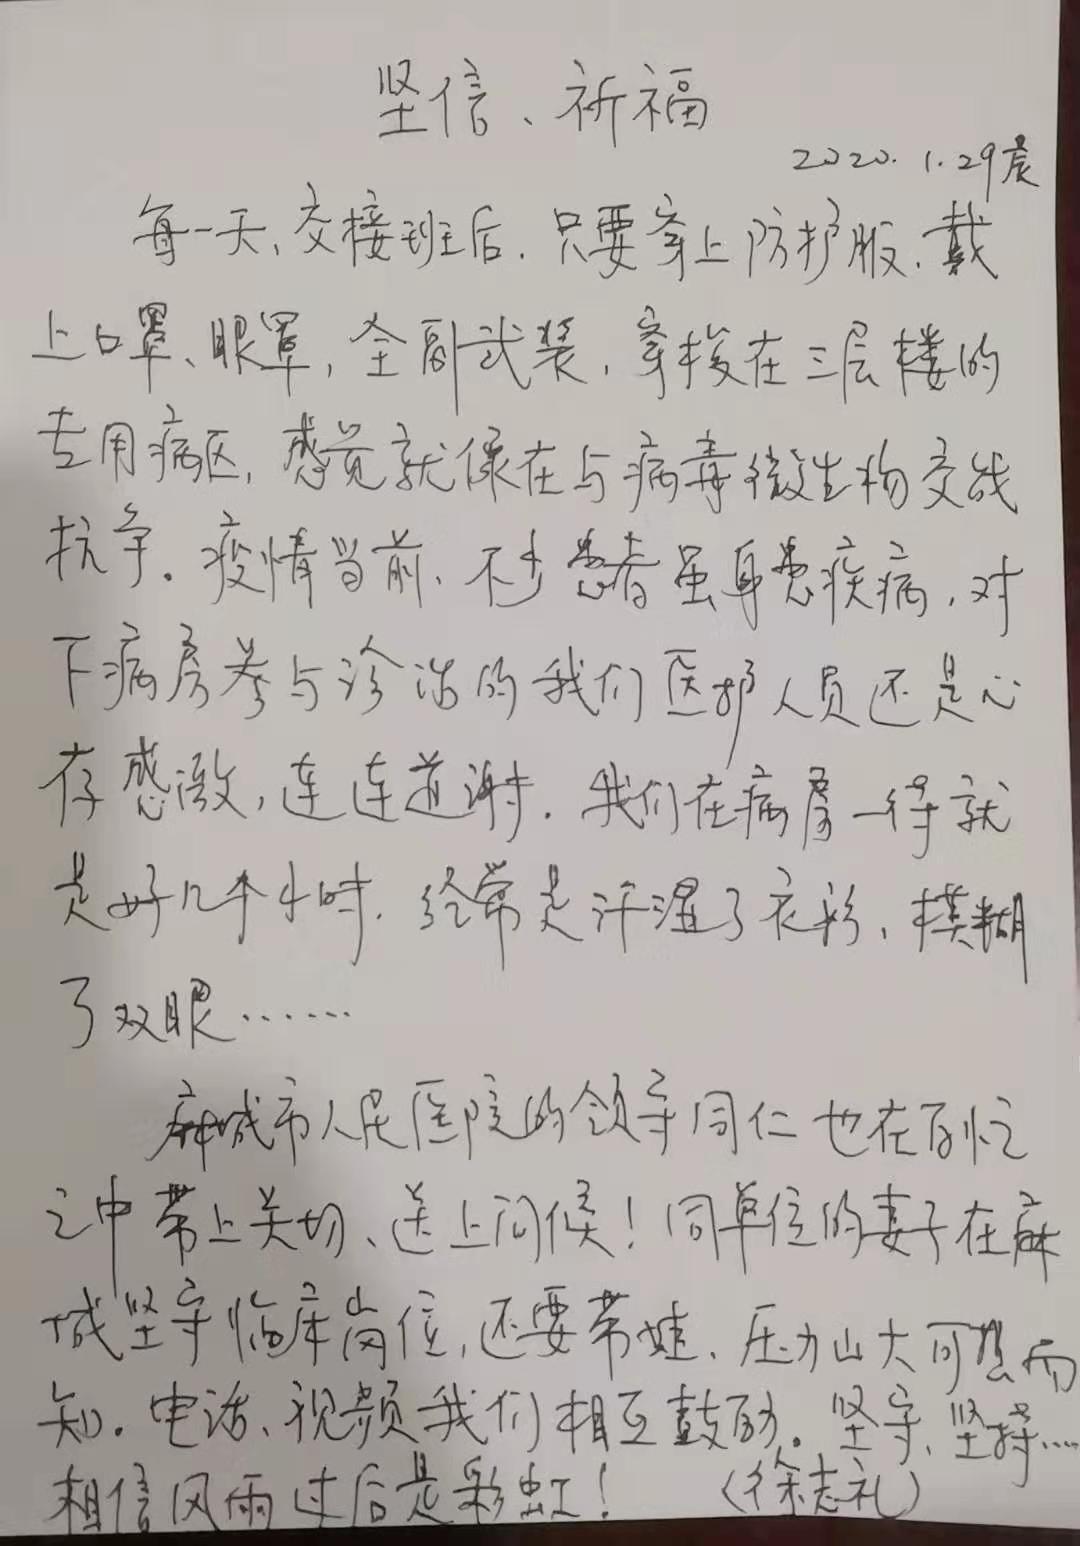 坚信、祈福
2020.1.29晨
每一天、交接班后.只要穿上防护服、戴
上口罩、眼罩,全副武装,穿梭在三层楼的
专用病区,感觉就像在与病毒微生物交战
抗争。疫情当前、不少患者虽身患疾病,对
下病房参与诊治的我们医护人员还是心
存感激,连连道谢.我们在病房一待就
是好几个小时.经常是汗湿了衣衫、模糊
了双眼……
麻城市人民医院的领导同仁也在百忙
之中带上关切、送上问候!同单位的妻子在麻
城坚守临床岗位,还要带娃、压力山大可想而
知.电话、视频我们相互鼓励。坚守、坚持…
相信风雨过后是彩虹!(徐志礼)